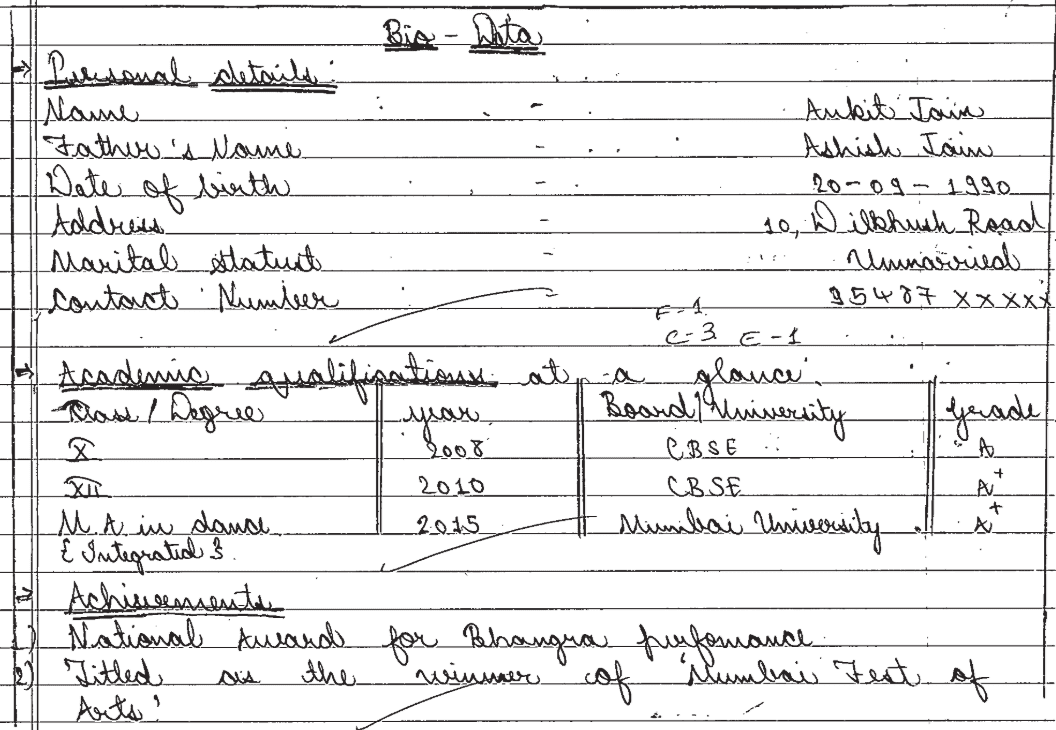 Bio - Data
Personal details:
Name - Ankit Jain
Father's Name - Ashish Jain
Date of birth - 20-09-1990
Address - 10, Dilkhush Road
Marital status - Unmarried
Contact Number - 95487 XXXXX
F-1
C-3 E-1
Academic qualifications at a glance.
Class / Degree year Board/University Grade
X 2008 CBSE A
XII 2010 CBSE A+
M.A in dance 2015 Mumbai University. A+
{ Integrated }
Achievements
1) National Award for Bhangra perfomance
2) Titled as the winner of 'Mumbai Fest of
Arts'